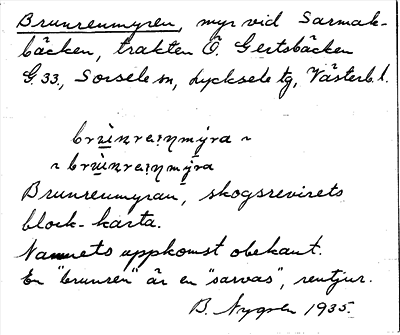 Brunrenmyren, myr vid Sarmak-
bäcken, trakten Ö. Gertsbäcken
G. 33, Sorsele sn, Lycksele tg, Västerb. l.
Brunrenmyran, skogsrevirets
block-karta.
Namnets uppkomst obekant.
En "brunren" är en "sarvas", rentjur.
B. Nygren 1935.